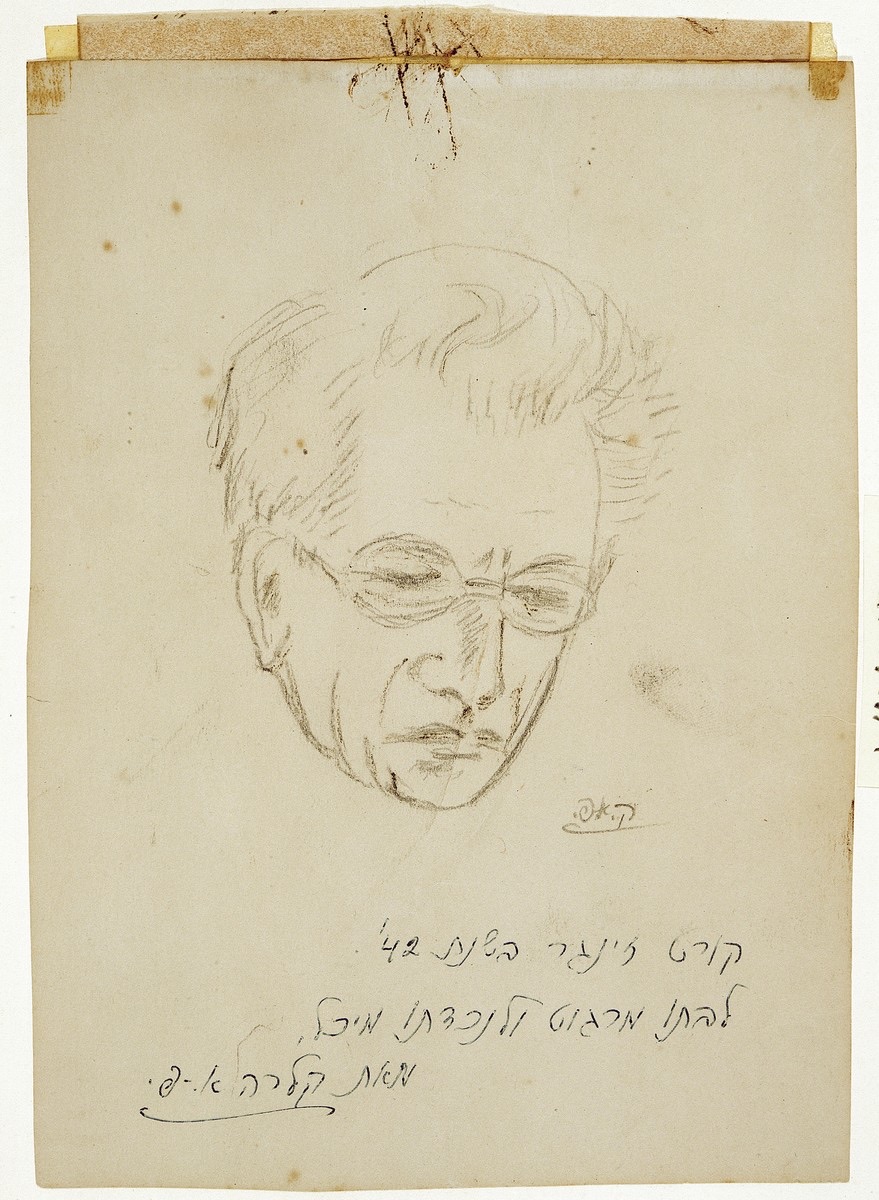 ק.א.פ.
קורט זינגר בשנת 42'
לבתו מרגוט ולנכדתו מיכל,
מאת קלרה א.-פ.